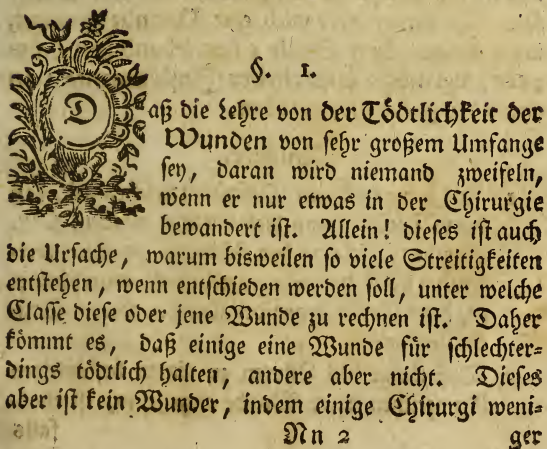 §. 1.
Daß die Lehre von der Tödtlichkeit der
Wunden von sehr großem Umfange
sey, daran wird niemand zweifeln,
wenn er nur etwas in der Chirurgie
bewandert ist. Allein! dieses ist auch
die Ursache, warum bisweilen so viele Streitigkeiten
entstehen, wenn entschieden werden soll, unter welche
Classe diese oder jene Wunde zu rechnen ist. Daher
kömmt es, daß einige eine Wunde für schlechter=
dings tödtlich halten, andere aber nicht. Dieses
aber ist kein Wunder, indem einige Chirurgi weni=
Nn 2 ger